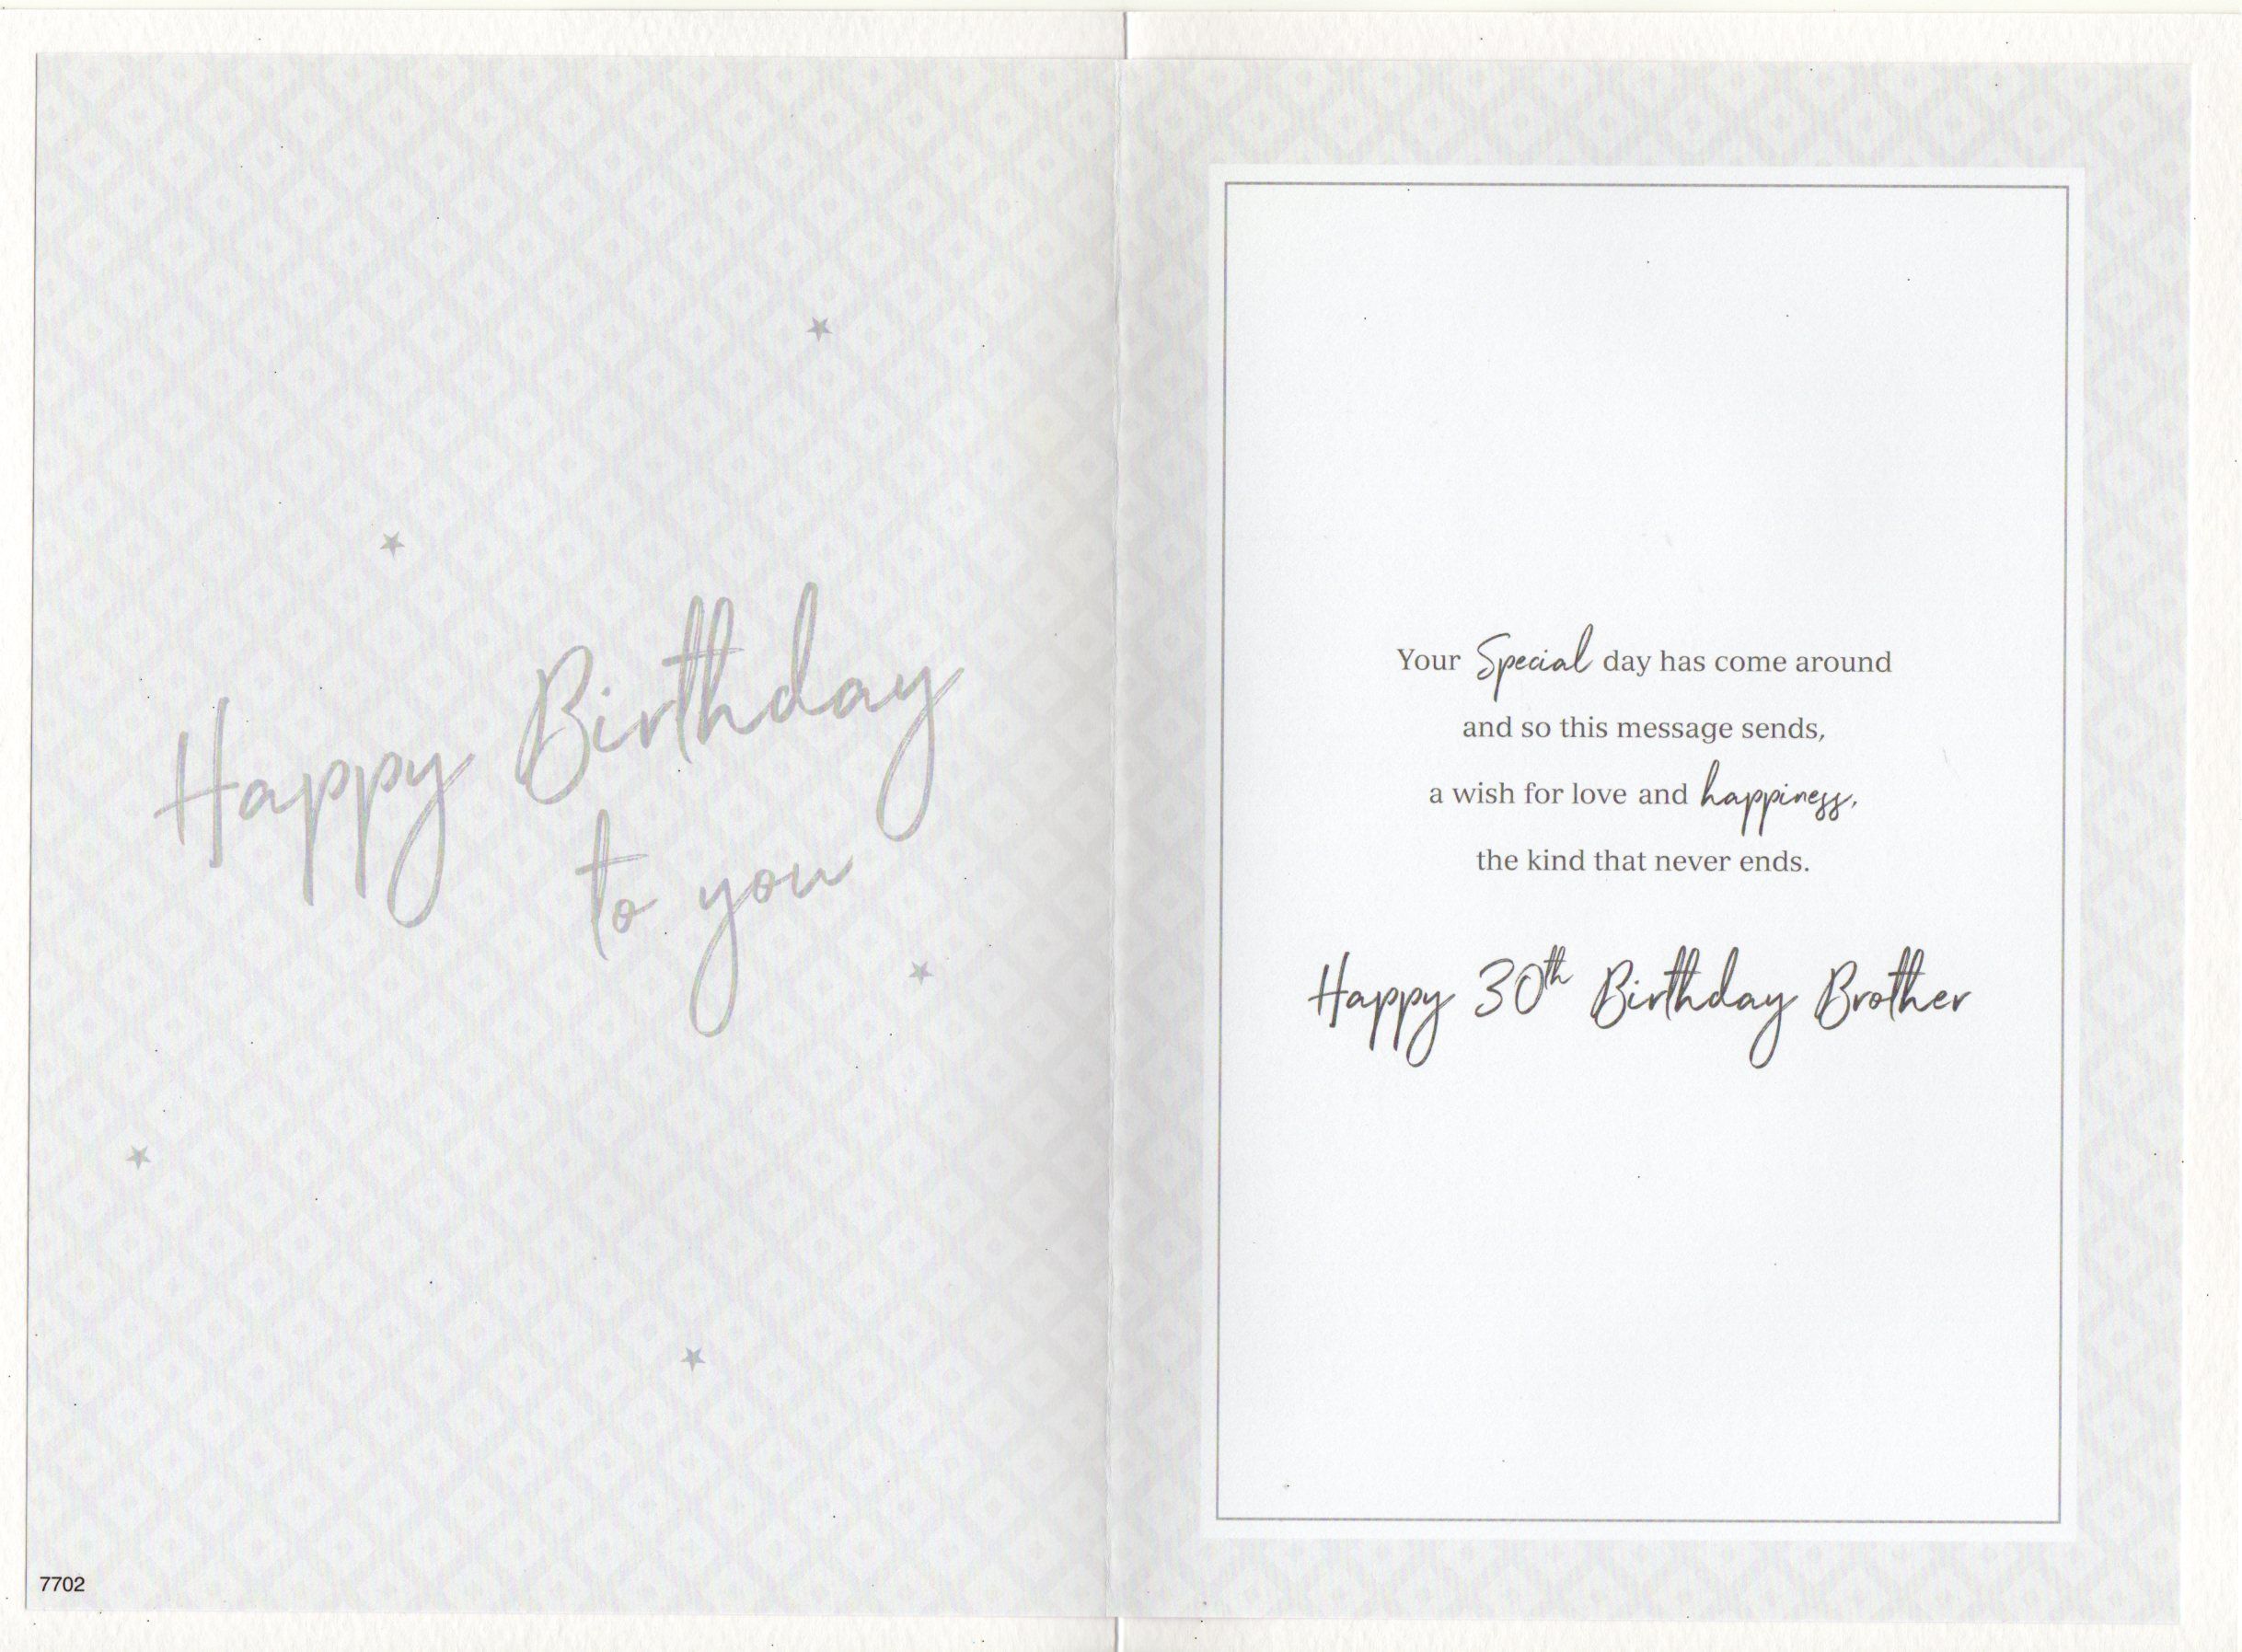 Happy Birthday
to you
7702
Your Special day has come around
and so this message sends,
a wish for love and happiness,
the kind that never ends.
Happy 30th Birthday Brother